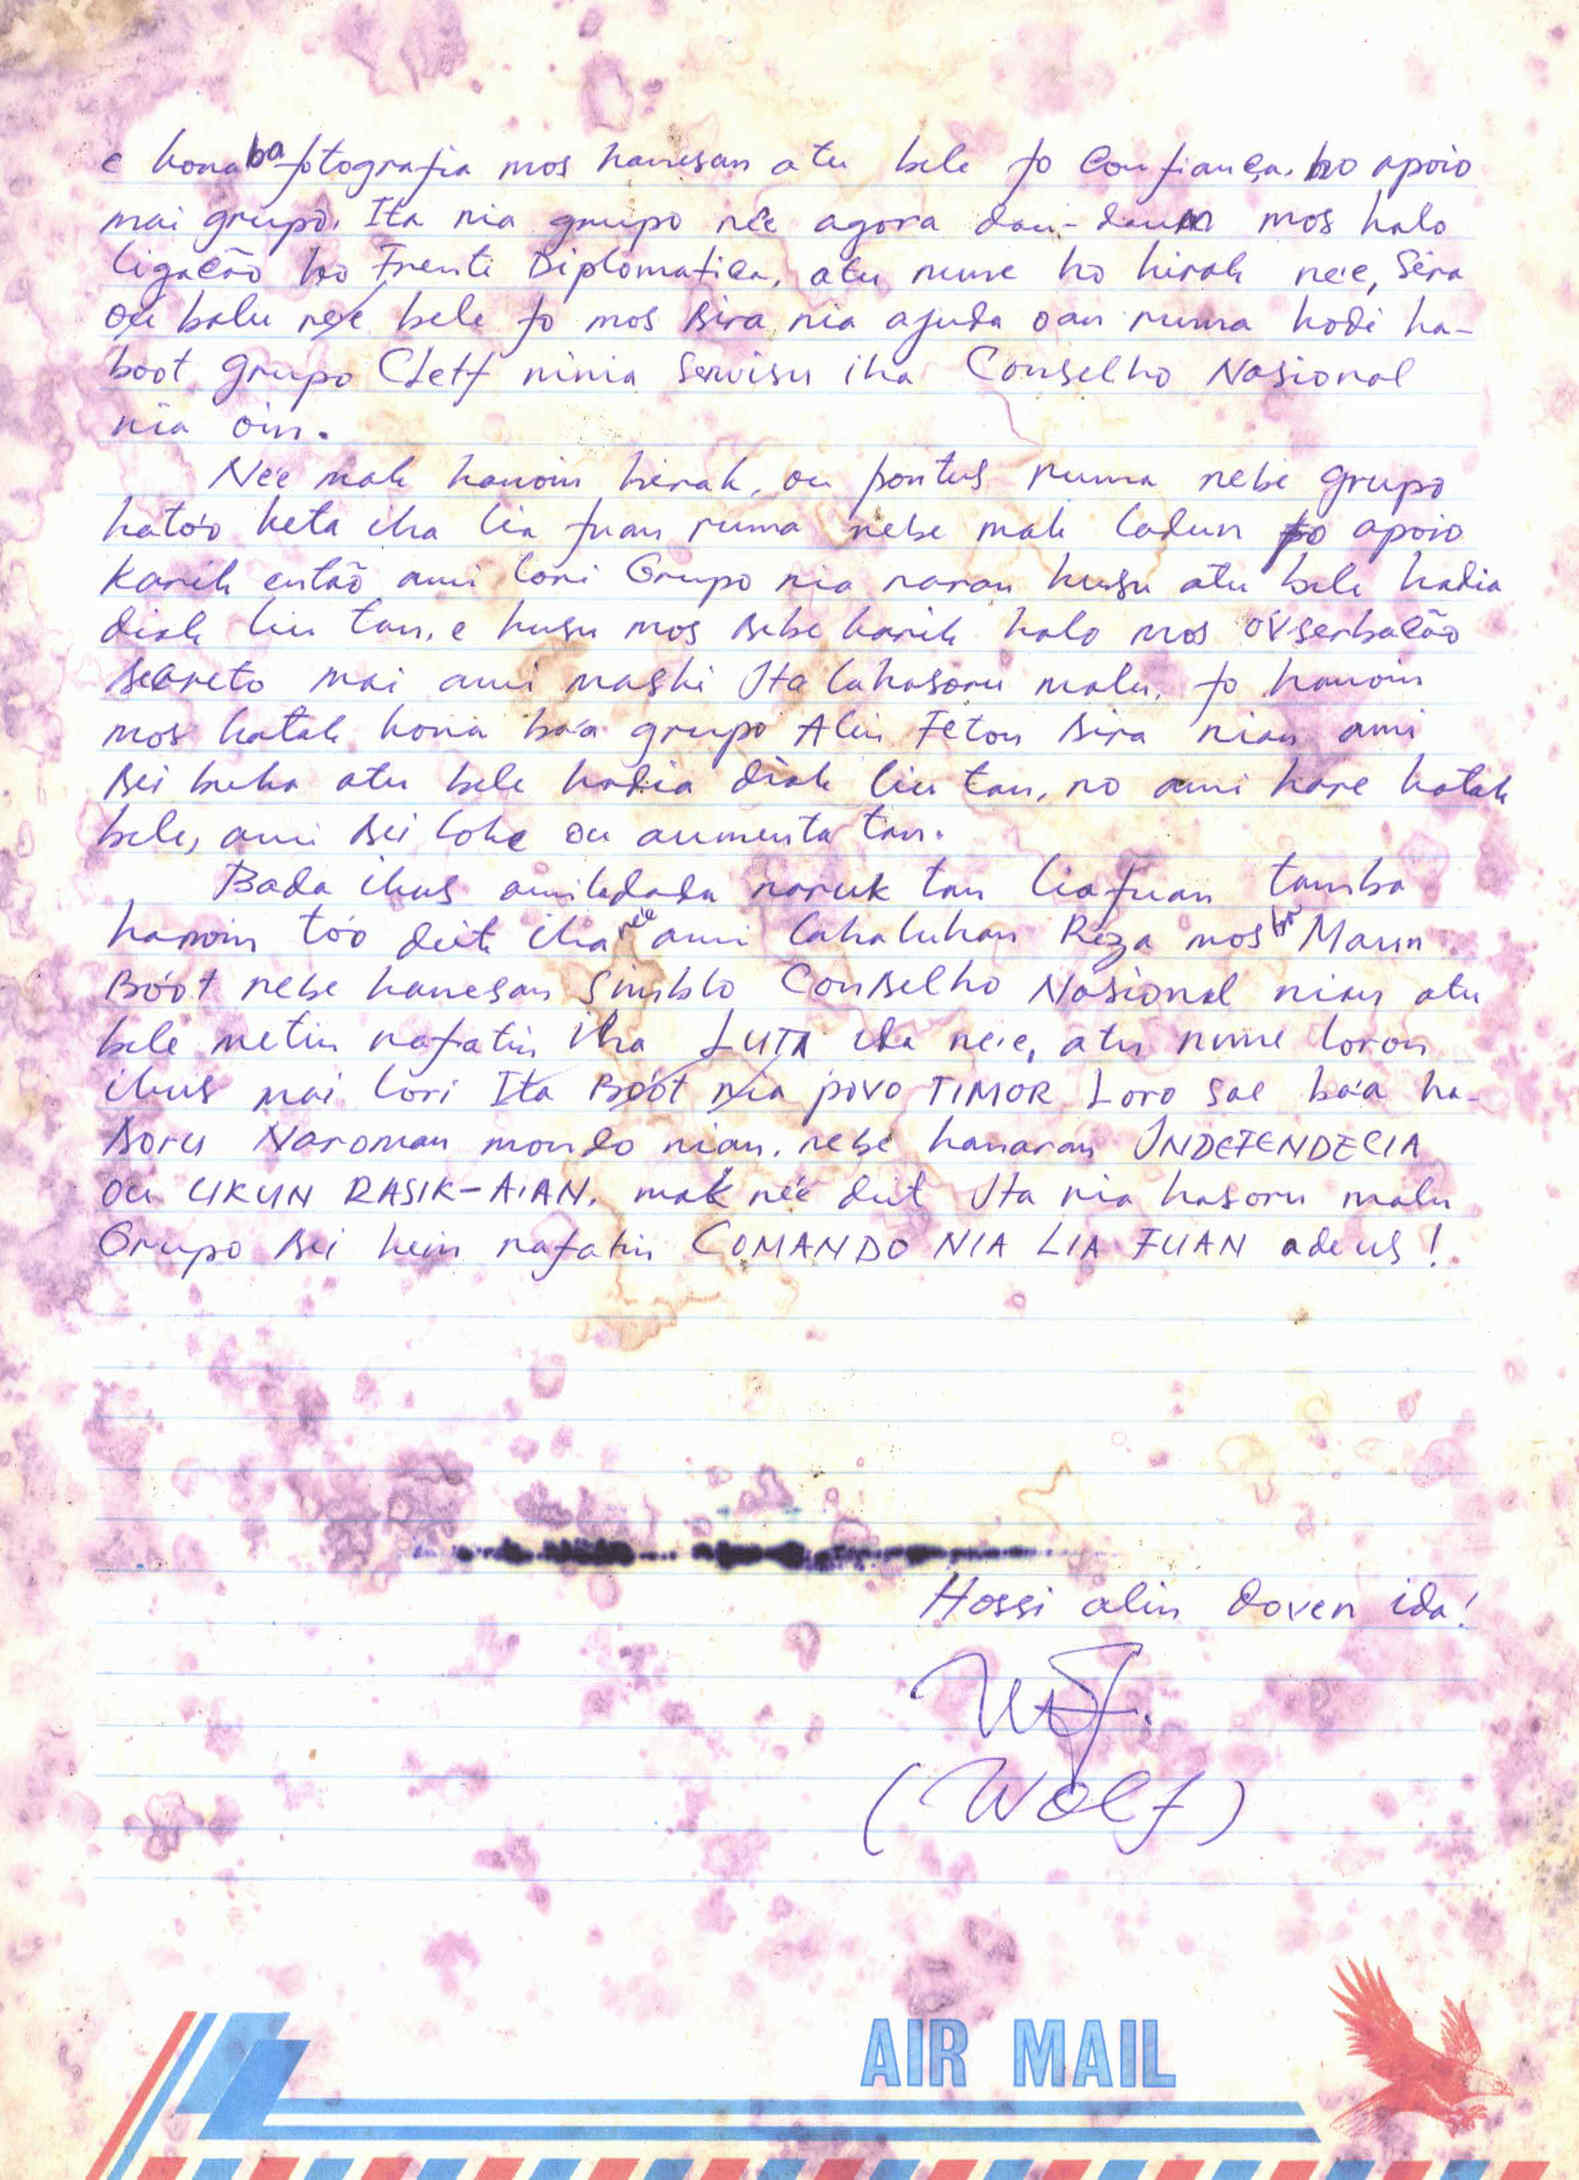 e kona ba fotografia mos hanesan atu bele fo confiança. ho apoio
mai grupo. Ita nia grupo né'e agora dau-daun mos halo
ligacão ho Frente Diplomatica, atu nune ho hirak ne'e, Sira
ou balu ne'e bele fo mos sira nia ajuda oan ruma hodi ha-
boot grupo Cleff ninia servisu iha Conselho Nasional
nia oin.
Né'e mak hanoin hirak, ou pontus ruma nebe grupo
hato'o keta iha lia fuan ruma nebe mak ladun fo apoio
karik entaõ ami lori Grupo nia naran husu atu bele hadia
diak liu tan. e husu mos sebe karik halo mos óvserbacão
secreto mai ami maski Ita lahasoru malu, fo hanoin
mos katak kona ba'a grupo Alin Feton sira nian ami
sei buka atu bele hadia diak liu tan, no ami hare katak
bele, ami sei loke ou aumenta tan.
Bada ikus ami ladada naruk tan liafuan tamba
hanoin to'o deit iha né'e ami lahaluhan Reza mos ba Maun
Bo'ot nebe hanesan Simblo Conselho Nasional nian atu
bele metin nafatin iha LUTA ida ne'e, atu nune loron
ikus mai lori Ita Bo'ot nia povo TIMOR Loro Sae ba'a ha-
soru Naroman mondo nian. nebe hanaran INDEFENDECIA
ou UKUN RASIK-A'AN. mak né'e deit Ita nia hasoru malu
Grupo sei hein nafatin COMANDO NIA LIA FUAN adeus!
Hossi alin doven ida!
(Wolf)
AIR MAIL